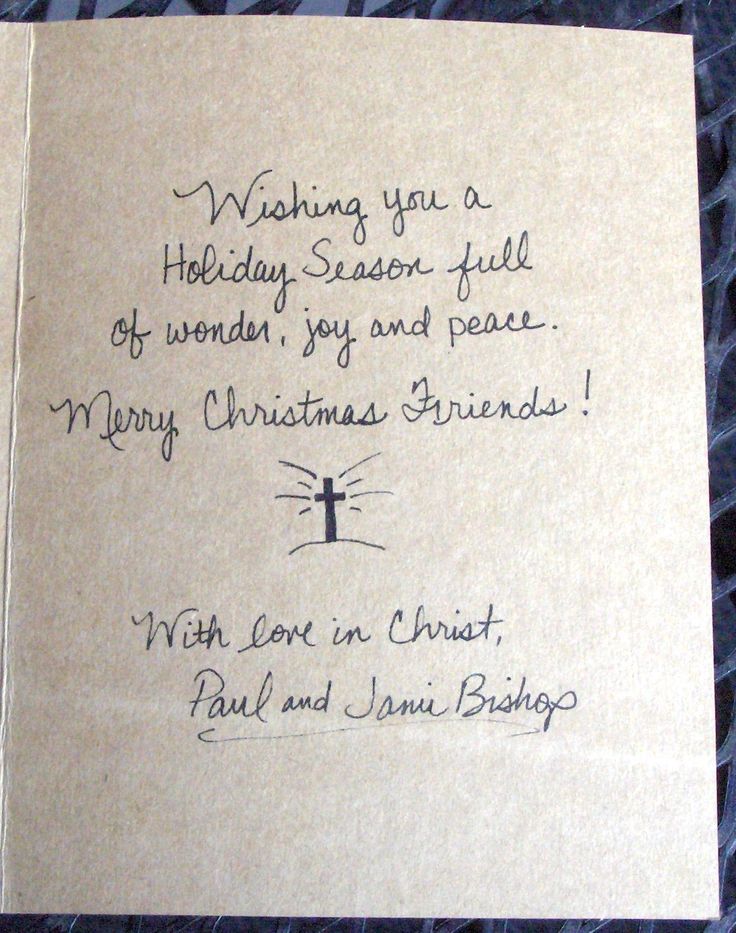 Wishing you a
Holiday Season full
of wonder, joy and peace.
Merry Christmas Friends!
With love in Christ,
Paul and Jamie Bishop